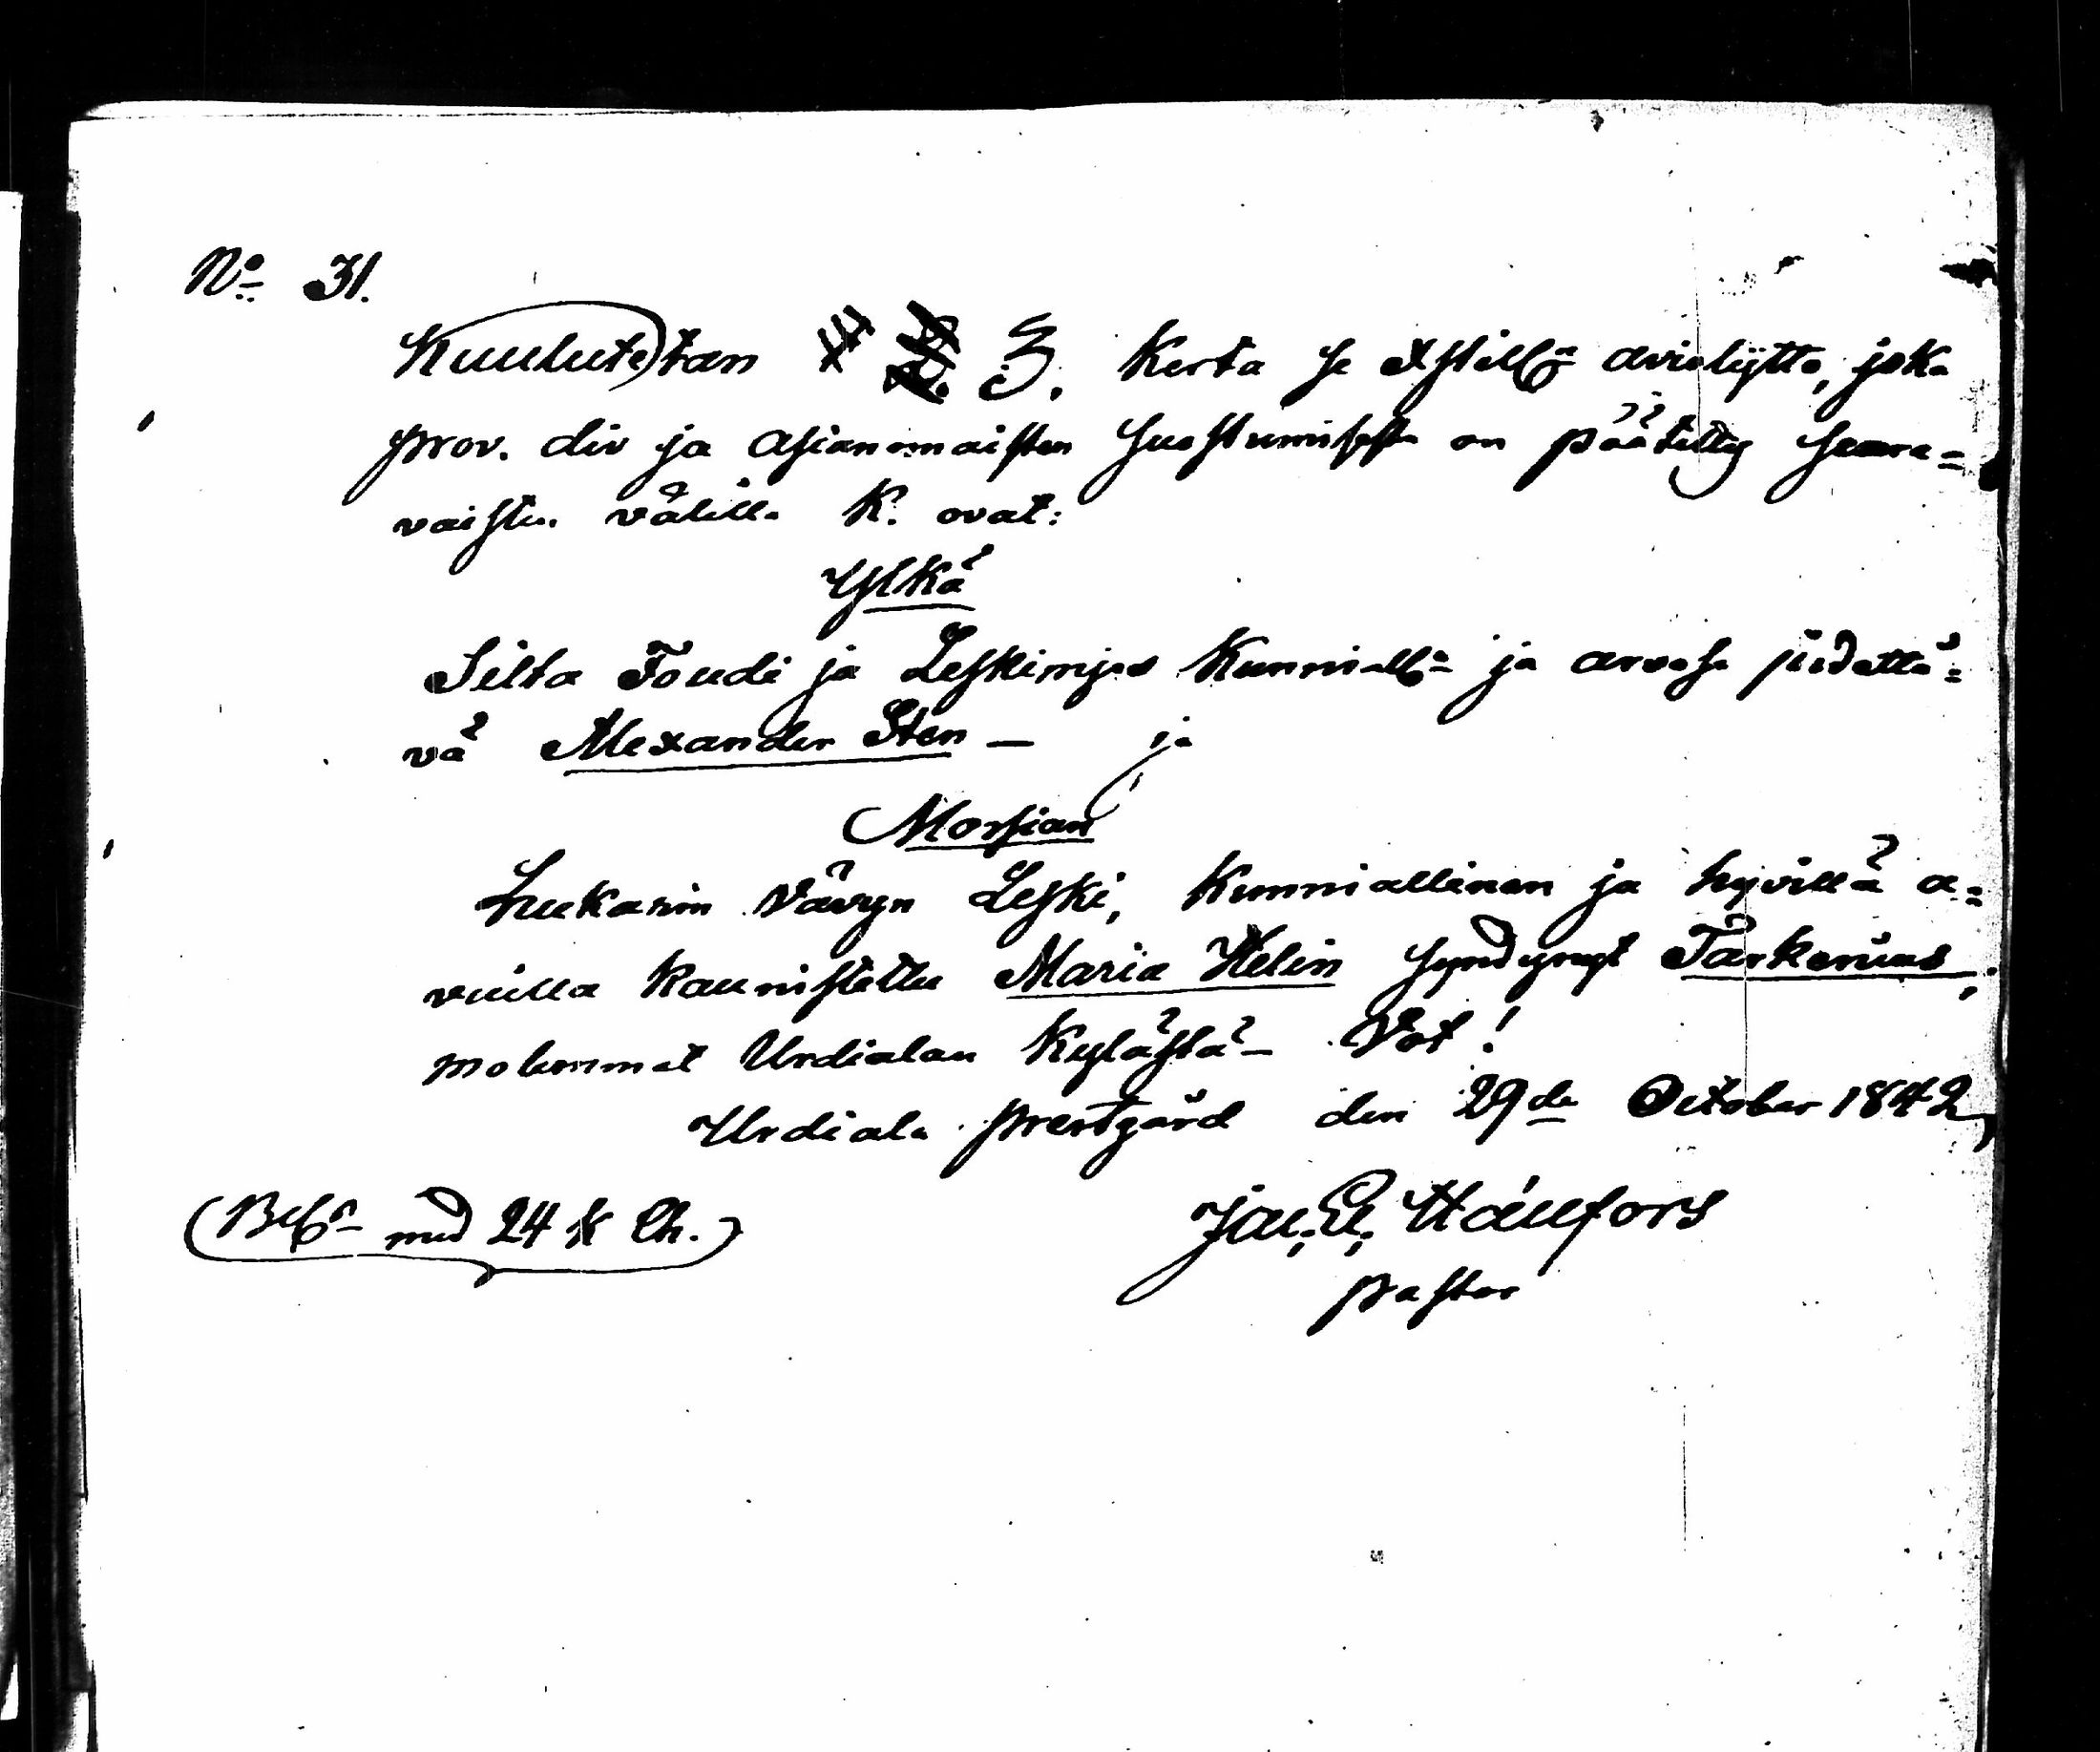 No 31.
Kuulutetan 3. Kerta se Xstilln aviolijtto, joka
prov. div ja asianomaisten suostumisesta on päätetty seura=
vaisten välillä K. ovat:
Ylkä
Silta Foudi ja Leskimjes Kunnialln ja arvosa pidettä=
vä Alexander Sten — ja
Morsian
Lukarin Vävyn Leski, Kunniallinen ja hyvillä a=
vuilla kaunistettu Maria Helin syndynyt Tarkenius,
molemmat Urdialan Kylästä – Vot!
Urdiala prestgård den 29de October 1842,
med 24 k
Jac. E. Hällfors
pastor